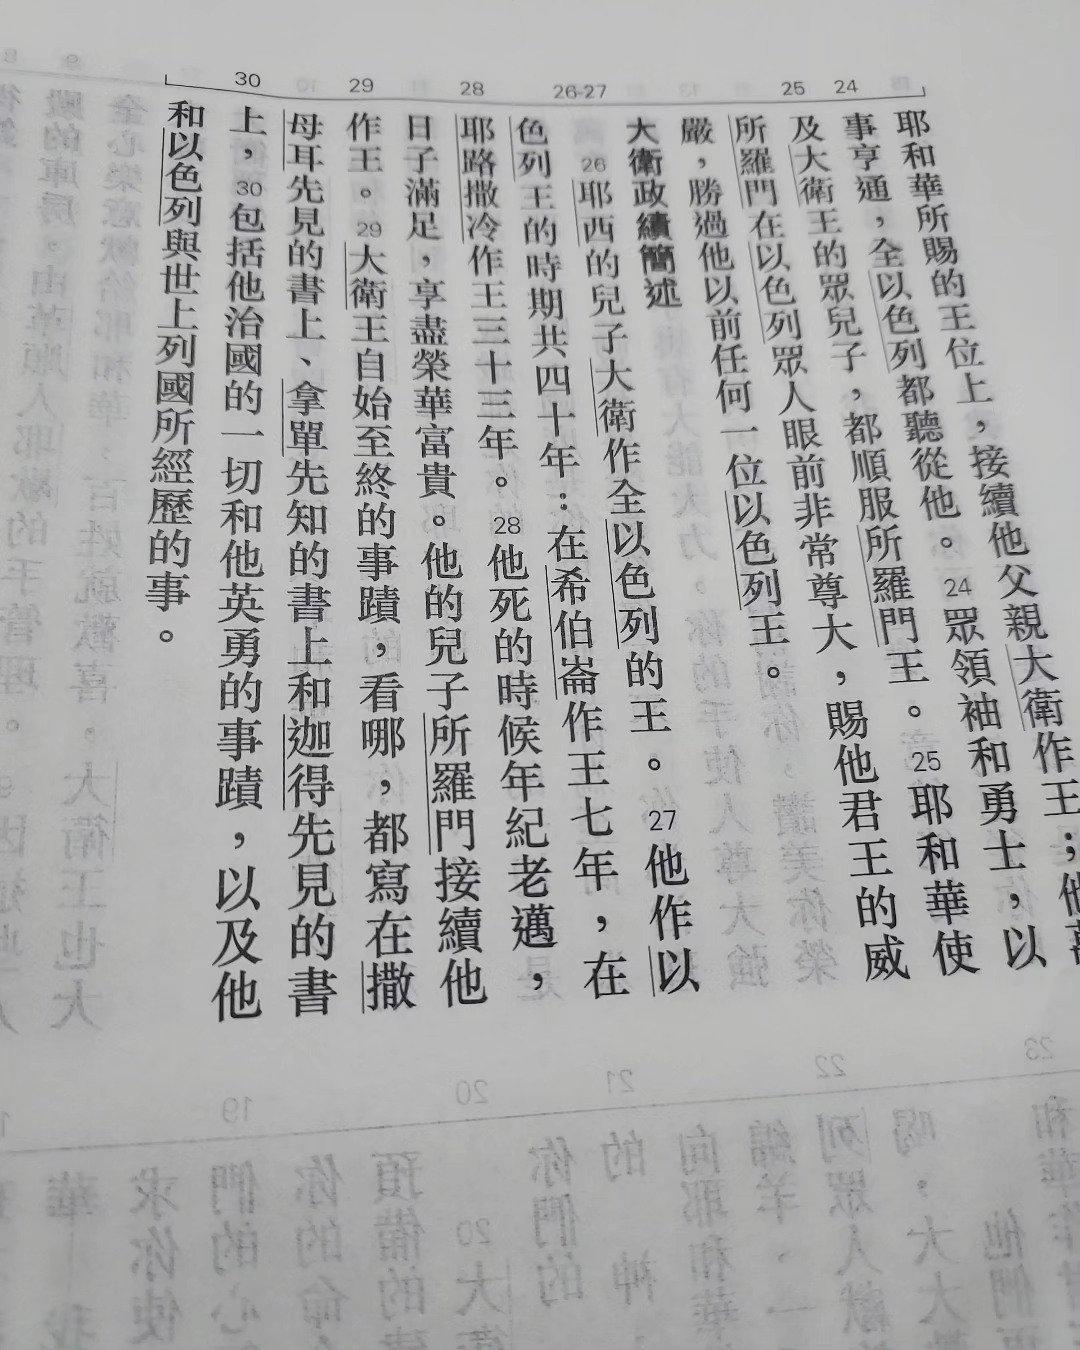 30 29 28 26-27 25 24
耶和華所賜的王位上，接續他父親大衛作王；他
事亨通，全以色列都聽從他。24眾領袖和勇士，以
及大衛王的眾兒子，都順服所羅門王。25耶和華使
所羅門在以色列眾人眼前非常尊大，賜他君王的威
嚴，勝過他以前任何一位以色列王。
大衛政績簡述
26耶西的兒子大衛作全以色列的王。27他作以
色列王的時期共四十年：在希伯崙作王七年，在
耶路撒冷作王三十三年。28他死的時候年紀老邁，
日子滿足，享盡榮華富貴。他的兒子所羅門接續他
作王。29大衛王自始至終的事蹟，看哪，都寫在撒
母耳先見的書上、拿單先知的書上和迦得先見的書
上，30包括他治國的一切和他英勇的事蹟，以及他
和以色列與世上列國所經歷的事。